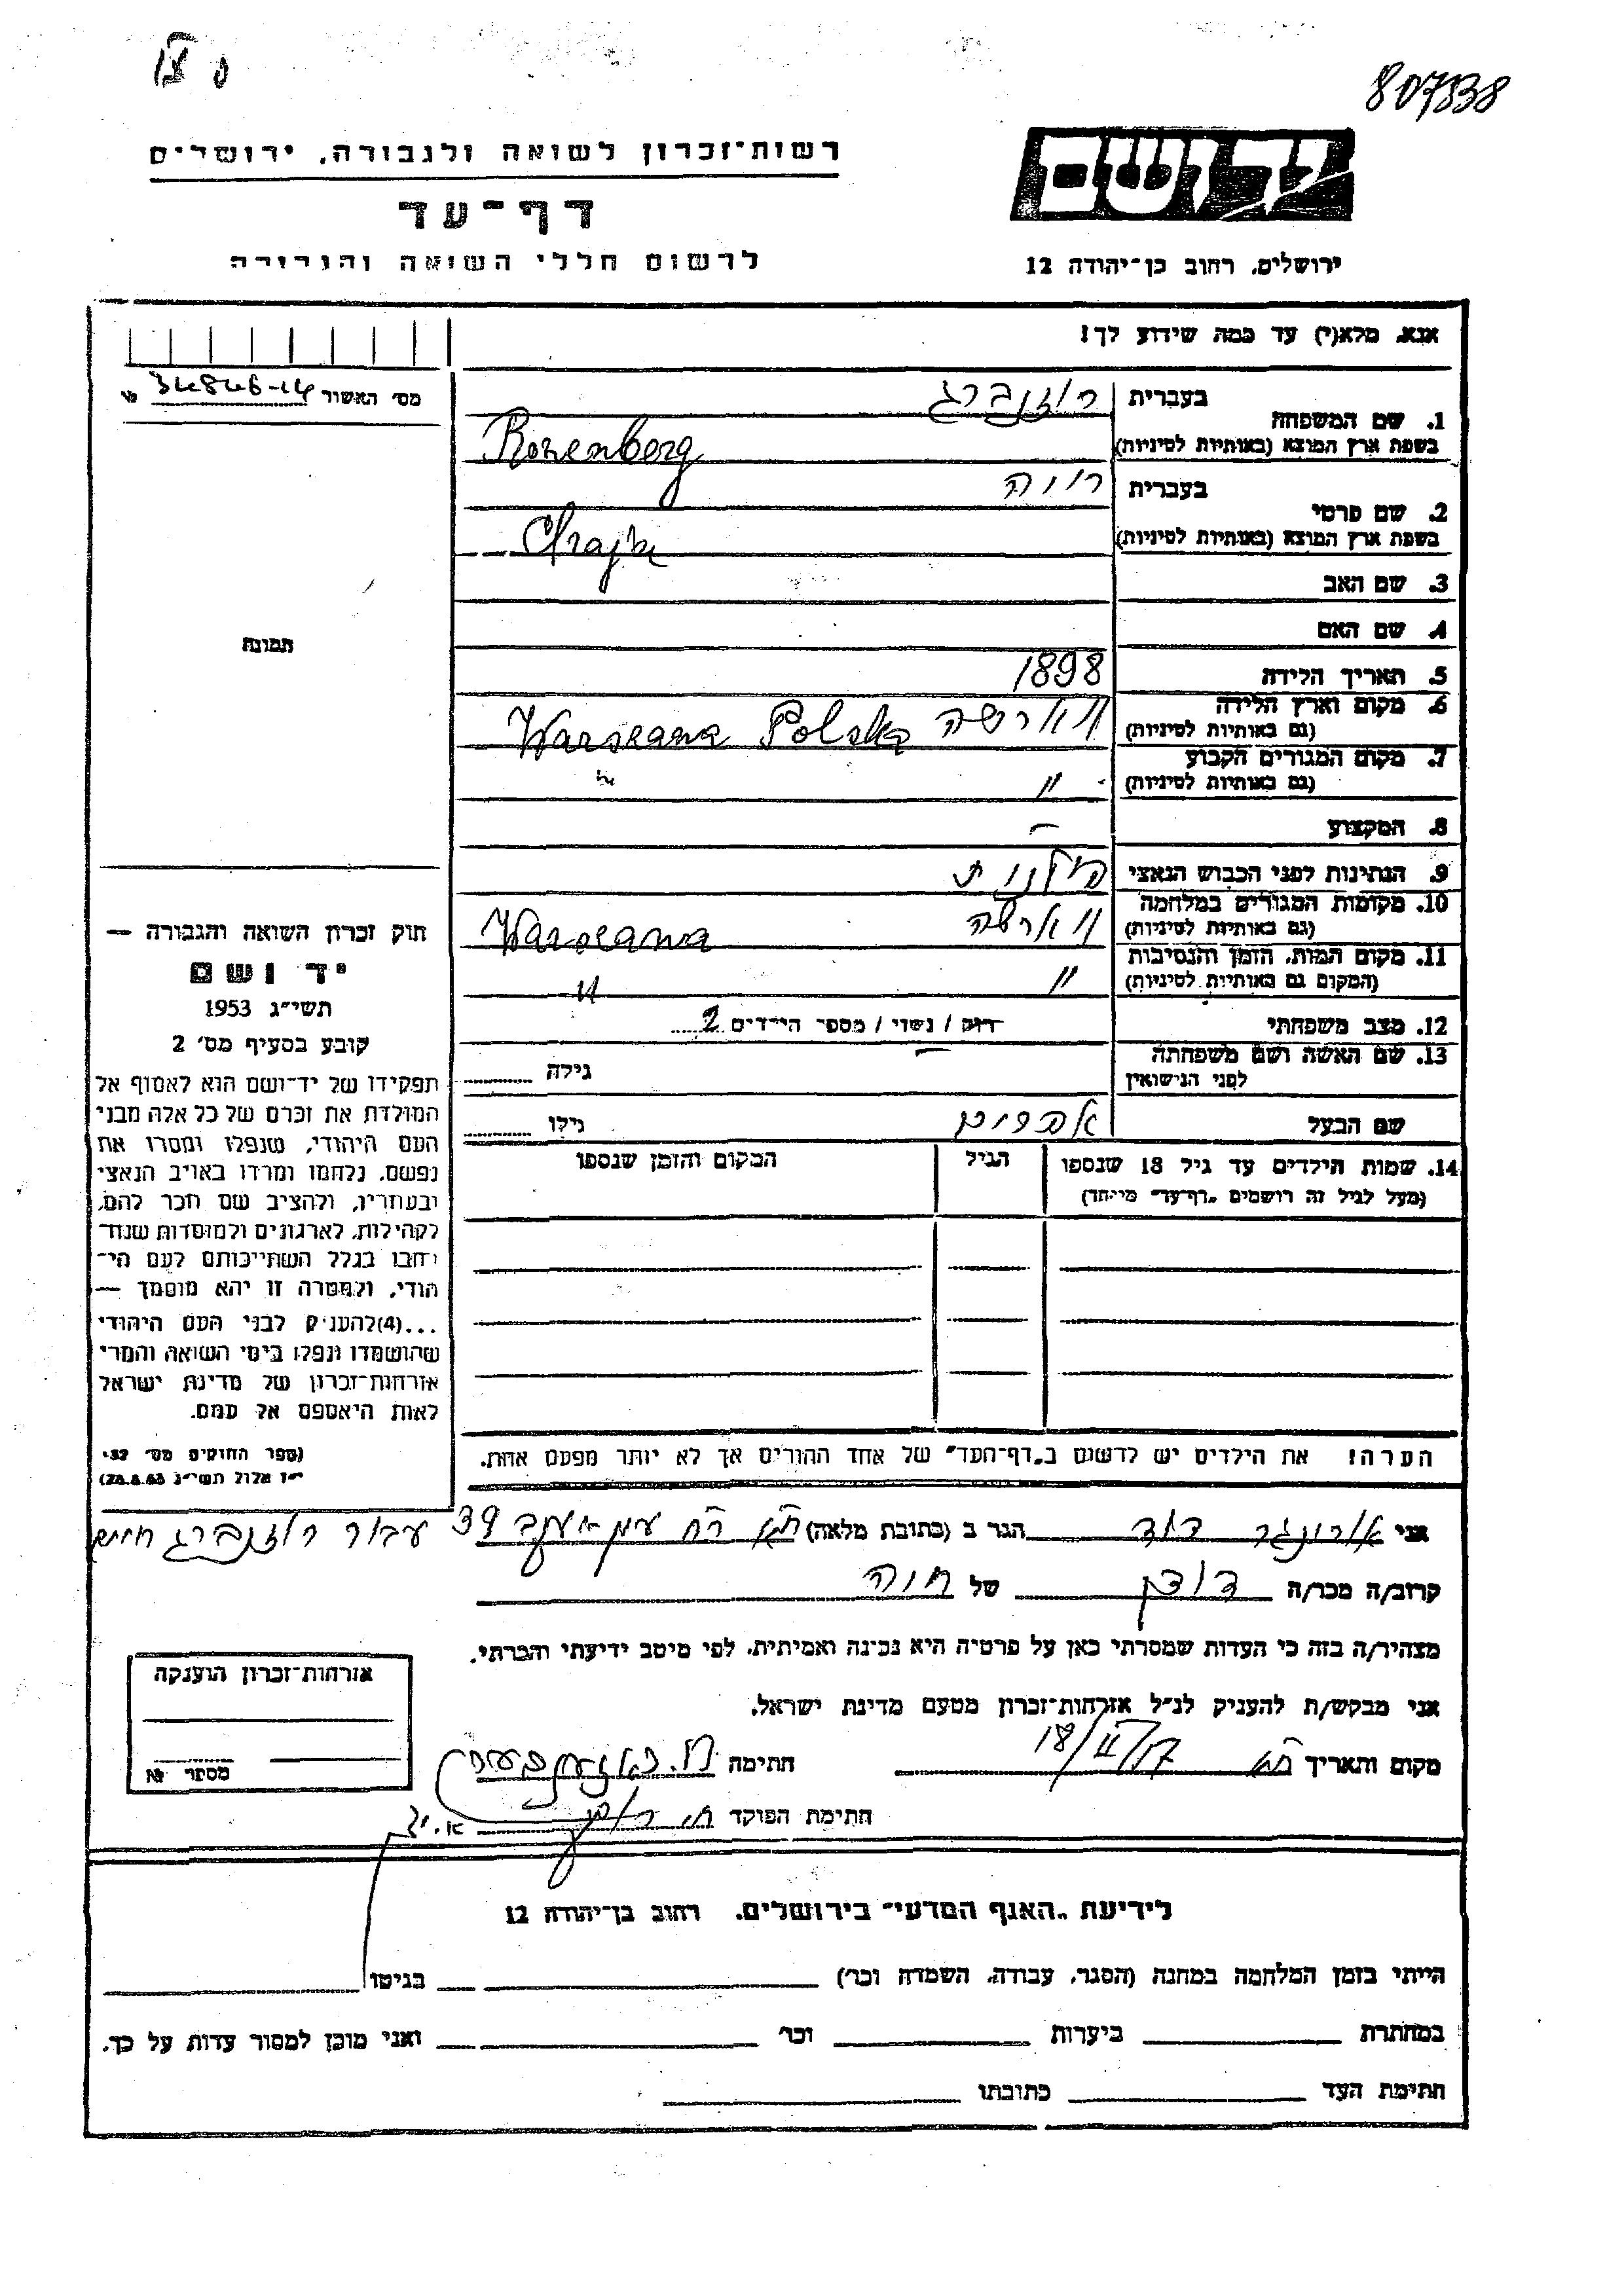 807838
יד ושם
רשות־זכרון לשואה ולגבורה, ירושלים
דף־עד
לרשום חללי השואה והגבורה
ירושלים, רחוב בן־יהודה 12
אנא, מלא(י) עד כמה שידוע לך!
מס׳ האשור 34846-14
בעברית רוזנברג
1. שם המשפחה
בשפת ארץ המוצא (באותיות לטיניות) Rozenberg
בעברית חוה
2. שם פרטי
בשפת ארץ המוצא (באותיות לטיניות) Chajka
3. שם האב
4. שם האם
תמונה
5. תאריך הלידה 1898
6. מקום וארץ הלידה ווארשה Warszawa Polska
(גם באותיות לטיניות)
7. מקום המגורים הקבוע
(גם באותיות לטיניות) " "
8. המקצוע —
9. הנתינות לפני הכבוש הנאצי פולנית
10. מקומות המגורים במלחמה ווארשה Warszawa
(גם באותיות לטיניות)
11. מקום המות, הזמן והנסיבות
(המקום גם באותיות לטיניות) " "
12. מצב משפחתי רווק / נשוי / מספר הילדים 2
13. שם האשה ושם משפחתה — גילה
לפני הנישואין
שם הבעל אפרים גילו
14. שמות הילדים עד גיל 18 שנספו הגיל המקום והזמן שנספו
(מעל לגיל זה רושמים „דף־עד״ מיוחד)
חוק זכרון השואה והגבורה —
יד ושם
תשי״ג 1953
קובע בסעיף מס׳ 2
תפקידו של יד־ושם הוא לאסוף אל
המולדת את זכרם של כל אלה מבני
העם היהודי, שנפלו ומסרו את
נפשם, נלחמו ומרדו באויב הנאצי
ובעוזריו, ולהציב שם וזכר להם,
לקהילות, לארגונים ולמוסדות שנח־
רבו בגלל השתייכותם לעם הי־
הודי, ולמטרה זו יהא מוסמך —
...(4)להעניק לבני העם היהודי
שהושמדו ונפלו בימי השואה והמרי
אזרחות־זכרון של מדינת ישראל
לאות היאספם אל עמם.
(ספר החוקים מס׳ 132,
י״ז אלול תשי״ג 28.8.53)
הערה! את הילדים יש לרשום ב„דף־העד״ של אחד ההורים אך לא יותר מפעם אחת.
אני דוד הגר ב (כתובת מלאה) ת״א רח׳ 39 עבור רוזנברג חיים
קרוב/ה מכר/ה דודן של חוה
מצהיר/ה בזה כי העדות שמסרתי כאן על פרטיה היא נכונה ואמיתית, לפי מיטב ידיעתי והכרתי.
אני מבקש/ת להעניק לנ״ל אזרחות־זכרון מטעם מדינת ישראל.
מקום ותאריך ת״א 18/II/57 חתימה
חתימת הפוקד
אזרחות־זכרון הוענקה
מספר №
לידיעת „האגף המדעי״ בירושלים, רחוב בן־יהודה 12
הייתי בזמן המלחמה במחנה (הסגר, עבודה, השמדה וכו׳) בגיטו
במחתרת ביערות וכו׳ ואני מוכן למסור עדות על כך.
חתימת העד כתובתו